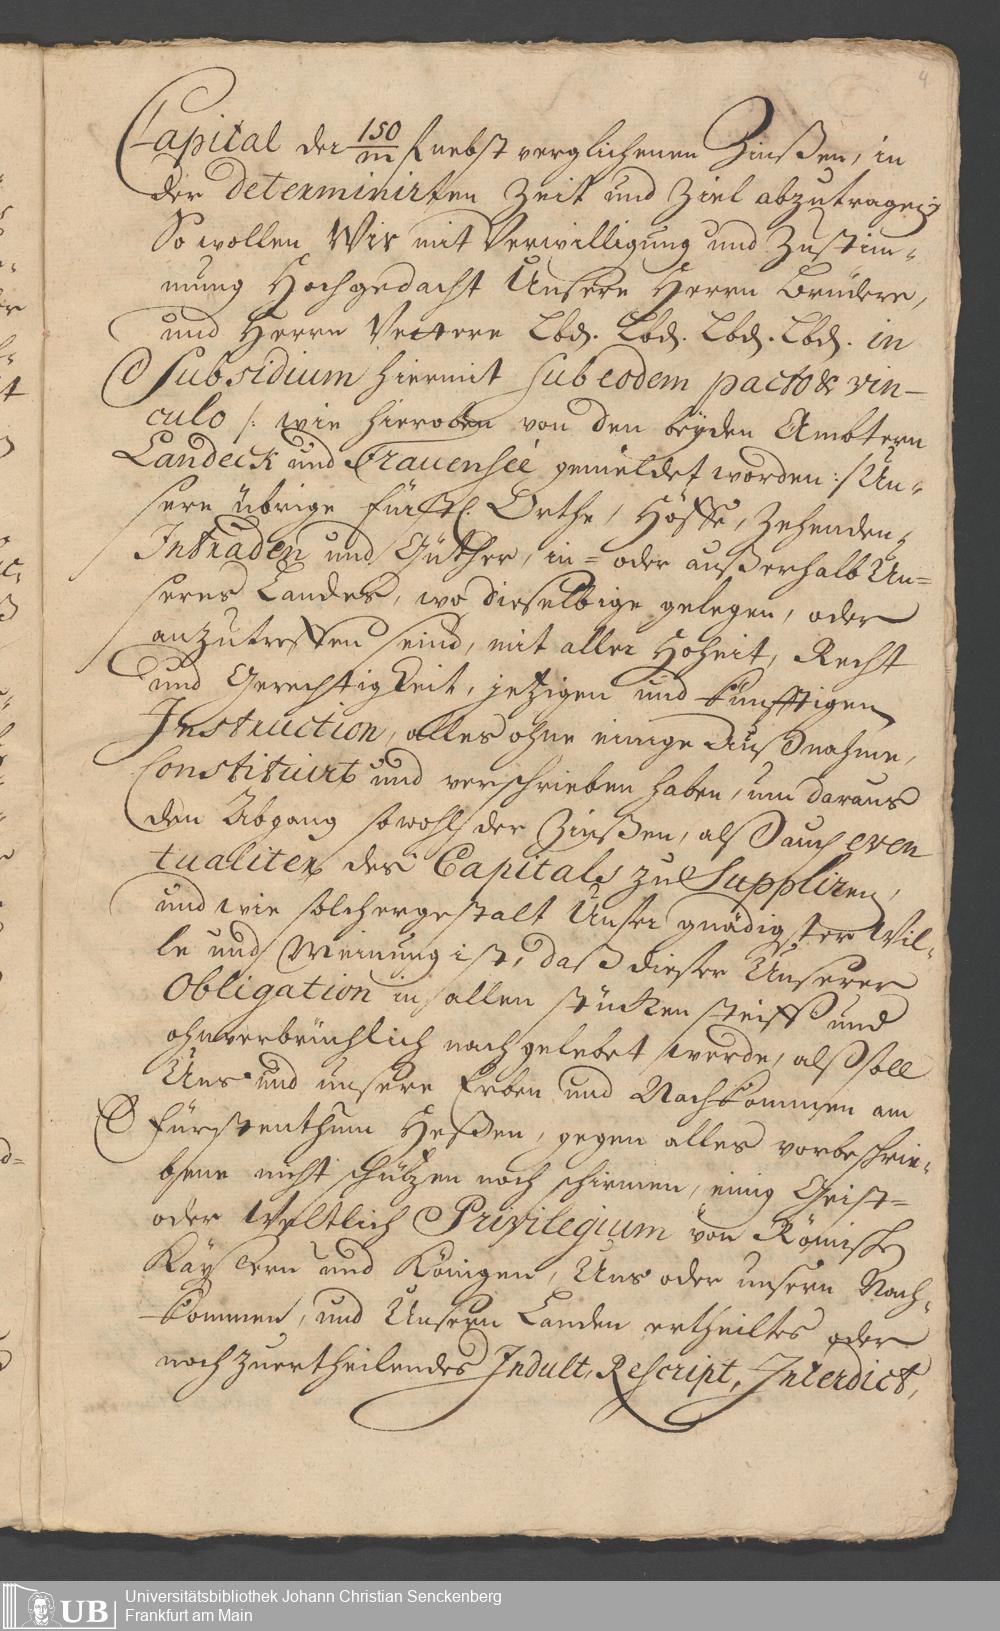 4
Capital der 150/m f nebst verglichenen Zinßen, in
der determinirten Zeit und Ziel abzutragen;
So wollen Wir mit Verwilligung und Zustim-
mung Hochgedacht Unsere Herrn Brüdere,
und Herrn Vettere Lbd. Lbd. Lbd. Lbd. in
Subsidium hiermit sub eodem pacto & vin-
culo /: wie hieroben von den beyden Ambtern
Landeck und Frauensee gemeldet worden :/ Un-
sere übrige Fürstl. Orthe, Höffe, Zehenden,
Intraden und Güther, in- oder außerhalb Un-
seres Landes, wo dieselbige gelegen, oder
anzutreffen seind, mit aller Hoheit, Recht
und Gerechtigkeit, jetzigen und künfftigen
Instruction, alles ohne einige Außnahme,
Constituirt und verschrieben haben, um daraus
den Abgang sowohl der Zinßen, alß auch even
tualiter des Capitals zu Suppliren,
und wie solchergestalt Unser gnädigster Wil-
le und Meinung ist, daß dieser Unserer
Obligation in allen stücken steiff und
ohnverbrüchlich nachgelebet werde, alß soll
Uns und unsere Erben und Nachkommen am
Fürstenthum Heßen, gegen alles vorbeschrie-
bene nicht schützen noch schirmen, einig Geist-
oder Weltlich Privilegium von Römische
Kaysern und Königen, Uns oder unsern Nach-
kommen, und Unsern Landen ertheiltes oder
noch zuertheilendes Indult, Rescript, Interdict,
UB
Universitätsbibliothek Johann Christian Senckenberg
Frankfurt am Main